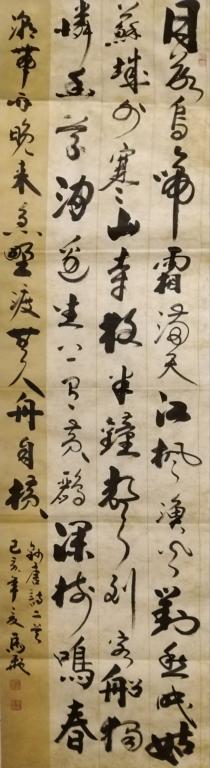 月落烏啼霜滿天江楓漁火對愁眠姑
蘇城外寒山寺夜半鐘聲到客船獨
憐幽草澗邊生上有黃鸝深樹鳴春
潮帶雨晚來急野渡無人舟自橫
錄唐詩二首
己亥年夏馬